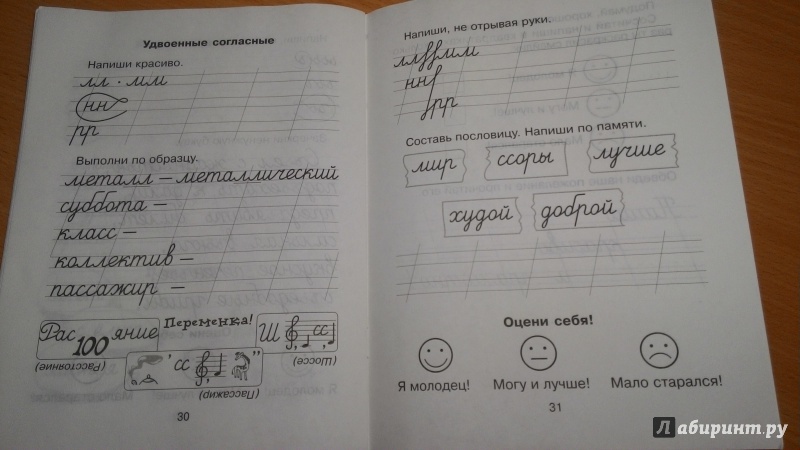 Удвоенные согласные
Напиши красиво.
лл · мм
нн
рр
Выполни по образцу.
металл – металлический
суббота –
класс –
коллектив –
пассажир –
Переменка!
Рас 100 яние
(Расстояние)
Ш сс
(Шоссе)
' сс "
(Пассажир)
30
Напиши, не отрывая руки.
нн
рр
Составь пословицу. Напиши по памяти.
мир ссоры лучше
худой доброй
Оцени себя!
Я молодец! Могу и лучше! Мало старался!
31
Лабиринт.ру